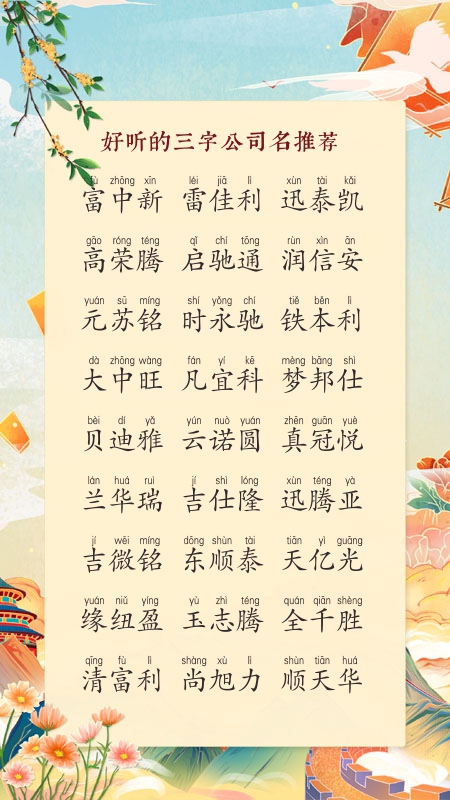 好听的三字公司名推荐
fù zhōng xīn léi jiā lì xùn tài kǎi
富中新 雷佳利 迅泰凯
gāo róng téng qǐ chí tōng rùn xìn ān
高荣腾 启驰通 润信安
yuán sū míng shí yǒng chí tiě běn lì
元苏铭 时永驰 铁本利
dà zhōng wàng fán yí kē mèng bāng shì
大中旺 凡宜科 梦邦仕
bèi dí yǎ yún nuò yuán zhēn guān yuè
贝迪雅 云诺圆 真冠悦
lán huá ruì jí shì lóng xùn téng yà
兰华瑞 吉仕隆 迅腾亚
jí wēi míng dōng shùn tài tiān yì guāng
吉微铭 东顺泰 天亿光
yuán niǔ yíng yù zhì téng quán qiān shèng
缘纽盈 玉志腾 全千胜
qīng fù lì shàng xù lì shùn tiān huá
清富利 尚旭力 顺天华